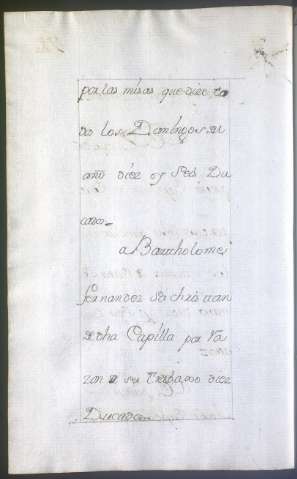 por las misas que dice to
dos los Domingos del
año diez y seis Du
cados
a Bartholome
fernandez Sachristan
dha Capilla por Ra
zon de su trabajo diez
Ducados